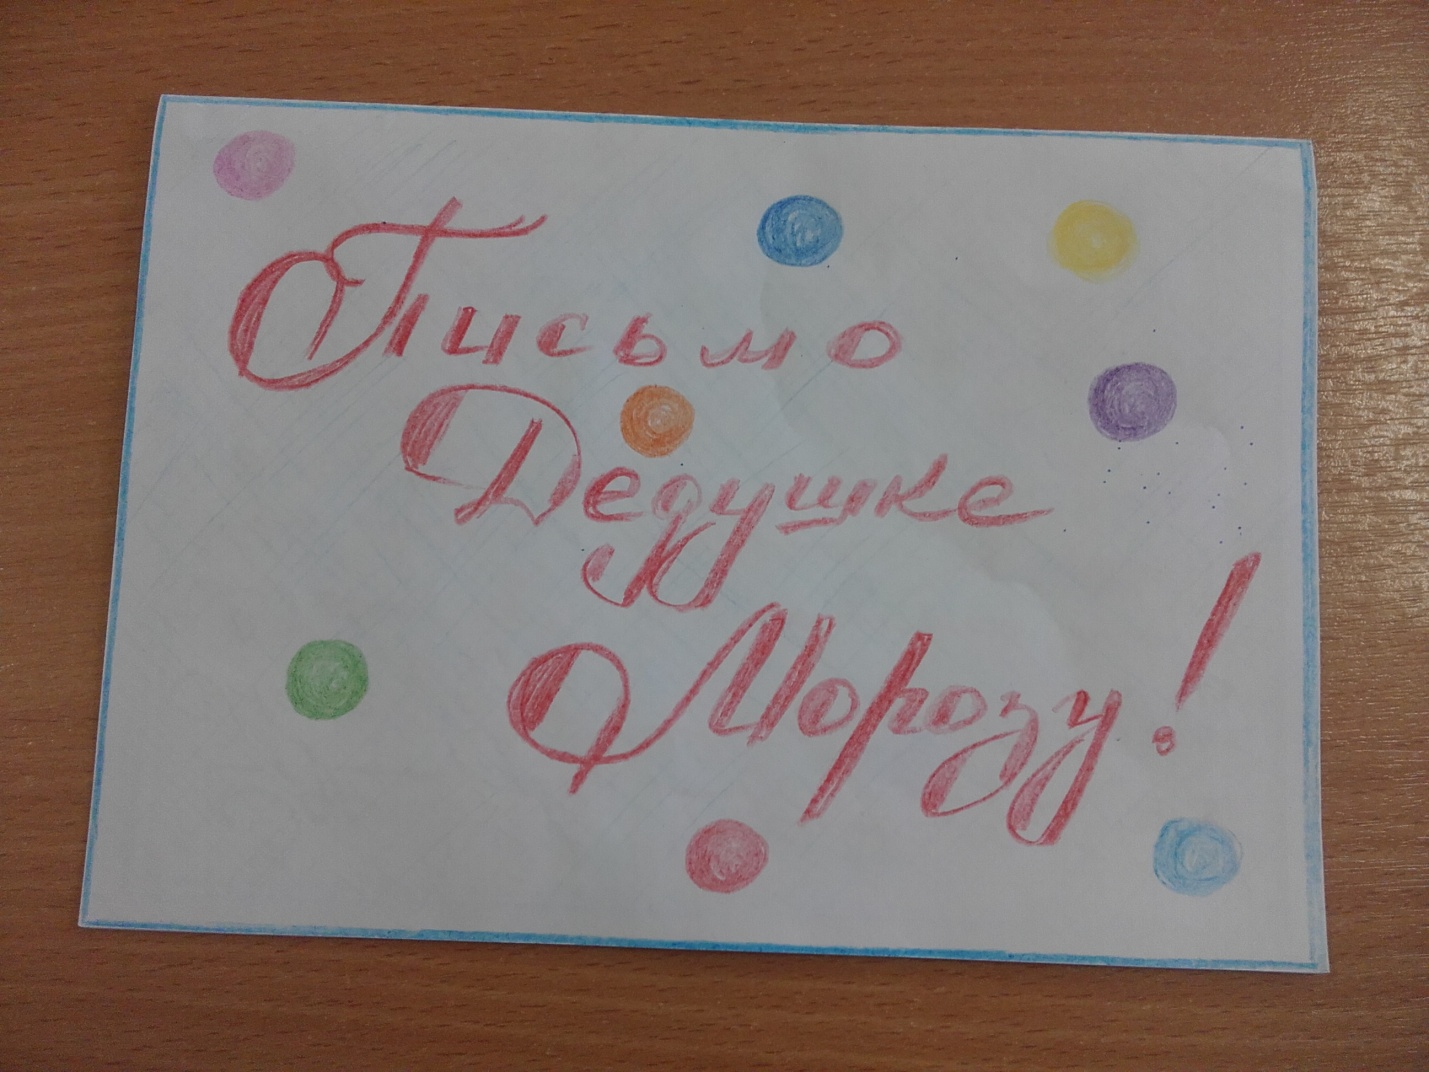 Письмо
Дедушке
Морозу!